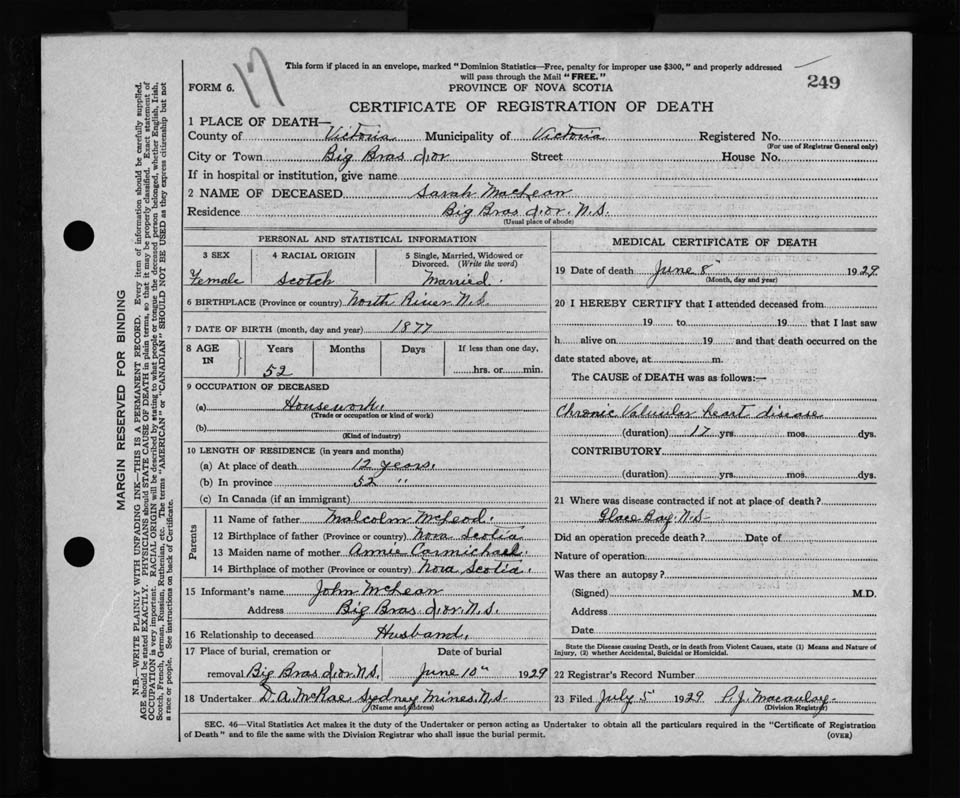 This form if placed in an envelope, marked "Dominion Statistics—Free, penalty for improper use $300," and properly addressed
will pass through the Mail "FREE."
249
FORM 6.
17
PROVINCE OF NOVA SCOTIA
CERTIFICATE OF REGISTRATION OF DEATH
1 PLACE OF DEATH—
County of Victoria Municipality of Victoria Registered No.
(For use of Registrar General only)
City or Town Big Bras d'or Street House No.
If in hospital or institution, give name
2 NAME OF DECEASED Sarah MacLean
Residence Big Bras d'or. N.S.
(Usual place of abode)
PERSONAL AND STATISTICAL INFORMATION
3 SEX 4 RACIAL ORIGIN 5 Single, Married, Widowed or
Divorced. (Write the word)
Female Scotch Married.
6 BIRTHPLACE (Province or country) North River N.S.
7 DATE OF BIRTH (month, day and year) 1877
8 AGE IN Years Months Days If less than one day,
52 hrs. or min.
9 OCCUPATION OF DECEASED
(a) Housework.
(Trade or occupation or kind of work)
(b)
(Kind of industry)
10 LENGTH OF RESIDENCE (in years and months)
(a) At place of death 12 years.
(b) In province 52 "
(c) In Canada (if an immigrant)
Parents
11 Name of father Malcolm McLeod.
12 Birthplace of father (Province or country) Nova Scotia
13 Maiden name of mother Annie Carmichael.
14 Birthplace of mother (Province or country) Nova Scotia.
15 Informant's name John McLean
Address Big Bras d'or. N.S.
16 Relationship to deceased Husband.
17 Place of burial, cremation or Date of burial
removal Big Bras d'or N.S. June 10th 1929
18 Undertaker D. A. McRae Sydney Mines N.S.
(Name and address)
MEDICAL CERTIFICATE OF DEATH
19 Date of death June 8 1929
(Month, day and year)
20 I HEREBY CERTIFY that I attended deceased from
19 to 19 that I last saw
h alive on 19 and that death occurred on the
date stated above, at m.
The CAUSE of DEATH was as follows:—
Chronic Valvular heart disease
(duration) 17 yrs. mos. dys.
CONTRIBUTORY
(duration) yrs. mos. dys.
21 Where was disease contracted if not at place of death?
Glace Bay. N.S.
Did an operation precede death? Date of
Nature of operation
Was there an autopsy?
(Signed) M.D.
Address
Date
State the Disease causing Death, or in death from Violent Causes, state (1) Means and Nature of
Injury, (2) whether Accidental, Suicidal or Homicidal.
22 Registrar's Record Number
23 Filed July 5 1929 P. J. Macaulay
(Division Registrar)
SEC. 46—Vital Statistics Act makes it the duty of the Undertaker or person acting as Undertaker to obtain all the particulars required in the "Certificate of Registration
of Death" and to file the same with the Division Registrar who shall issue the burial permit.
(OVER)
MARGIN RESERVED FOR BINDING
N.B.—WRITE PLAINLY WITH UNFADING INK—THIS IS A PERMANENT RECORD. Every item of information should be carefully supplied.
AGE should be stated EXACTLY. PHYSICIANS should STATE CAUSE OF DEATH in plain terms, so that it may be properly classified. Exact statement of
OCCUPATION is very important. RACIAL ORIGIN will be described by stating to what people or tongue the deceased person belonged, whether English, Irish,
Scotch, French, German, Russian, Ruthenian, etc. The terms "AMERICAN" or "CANADIAN" SHOULD NOT BE USED as they express citizenship but not
a race or people. See instructions on back of Certificate.